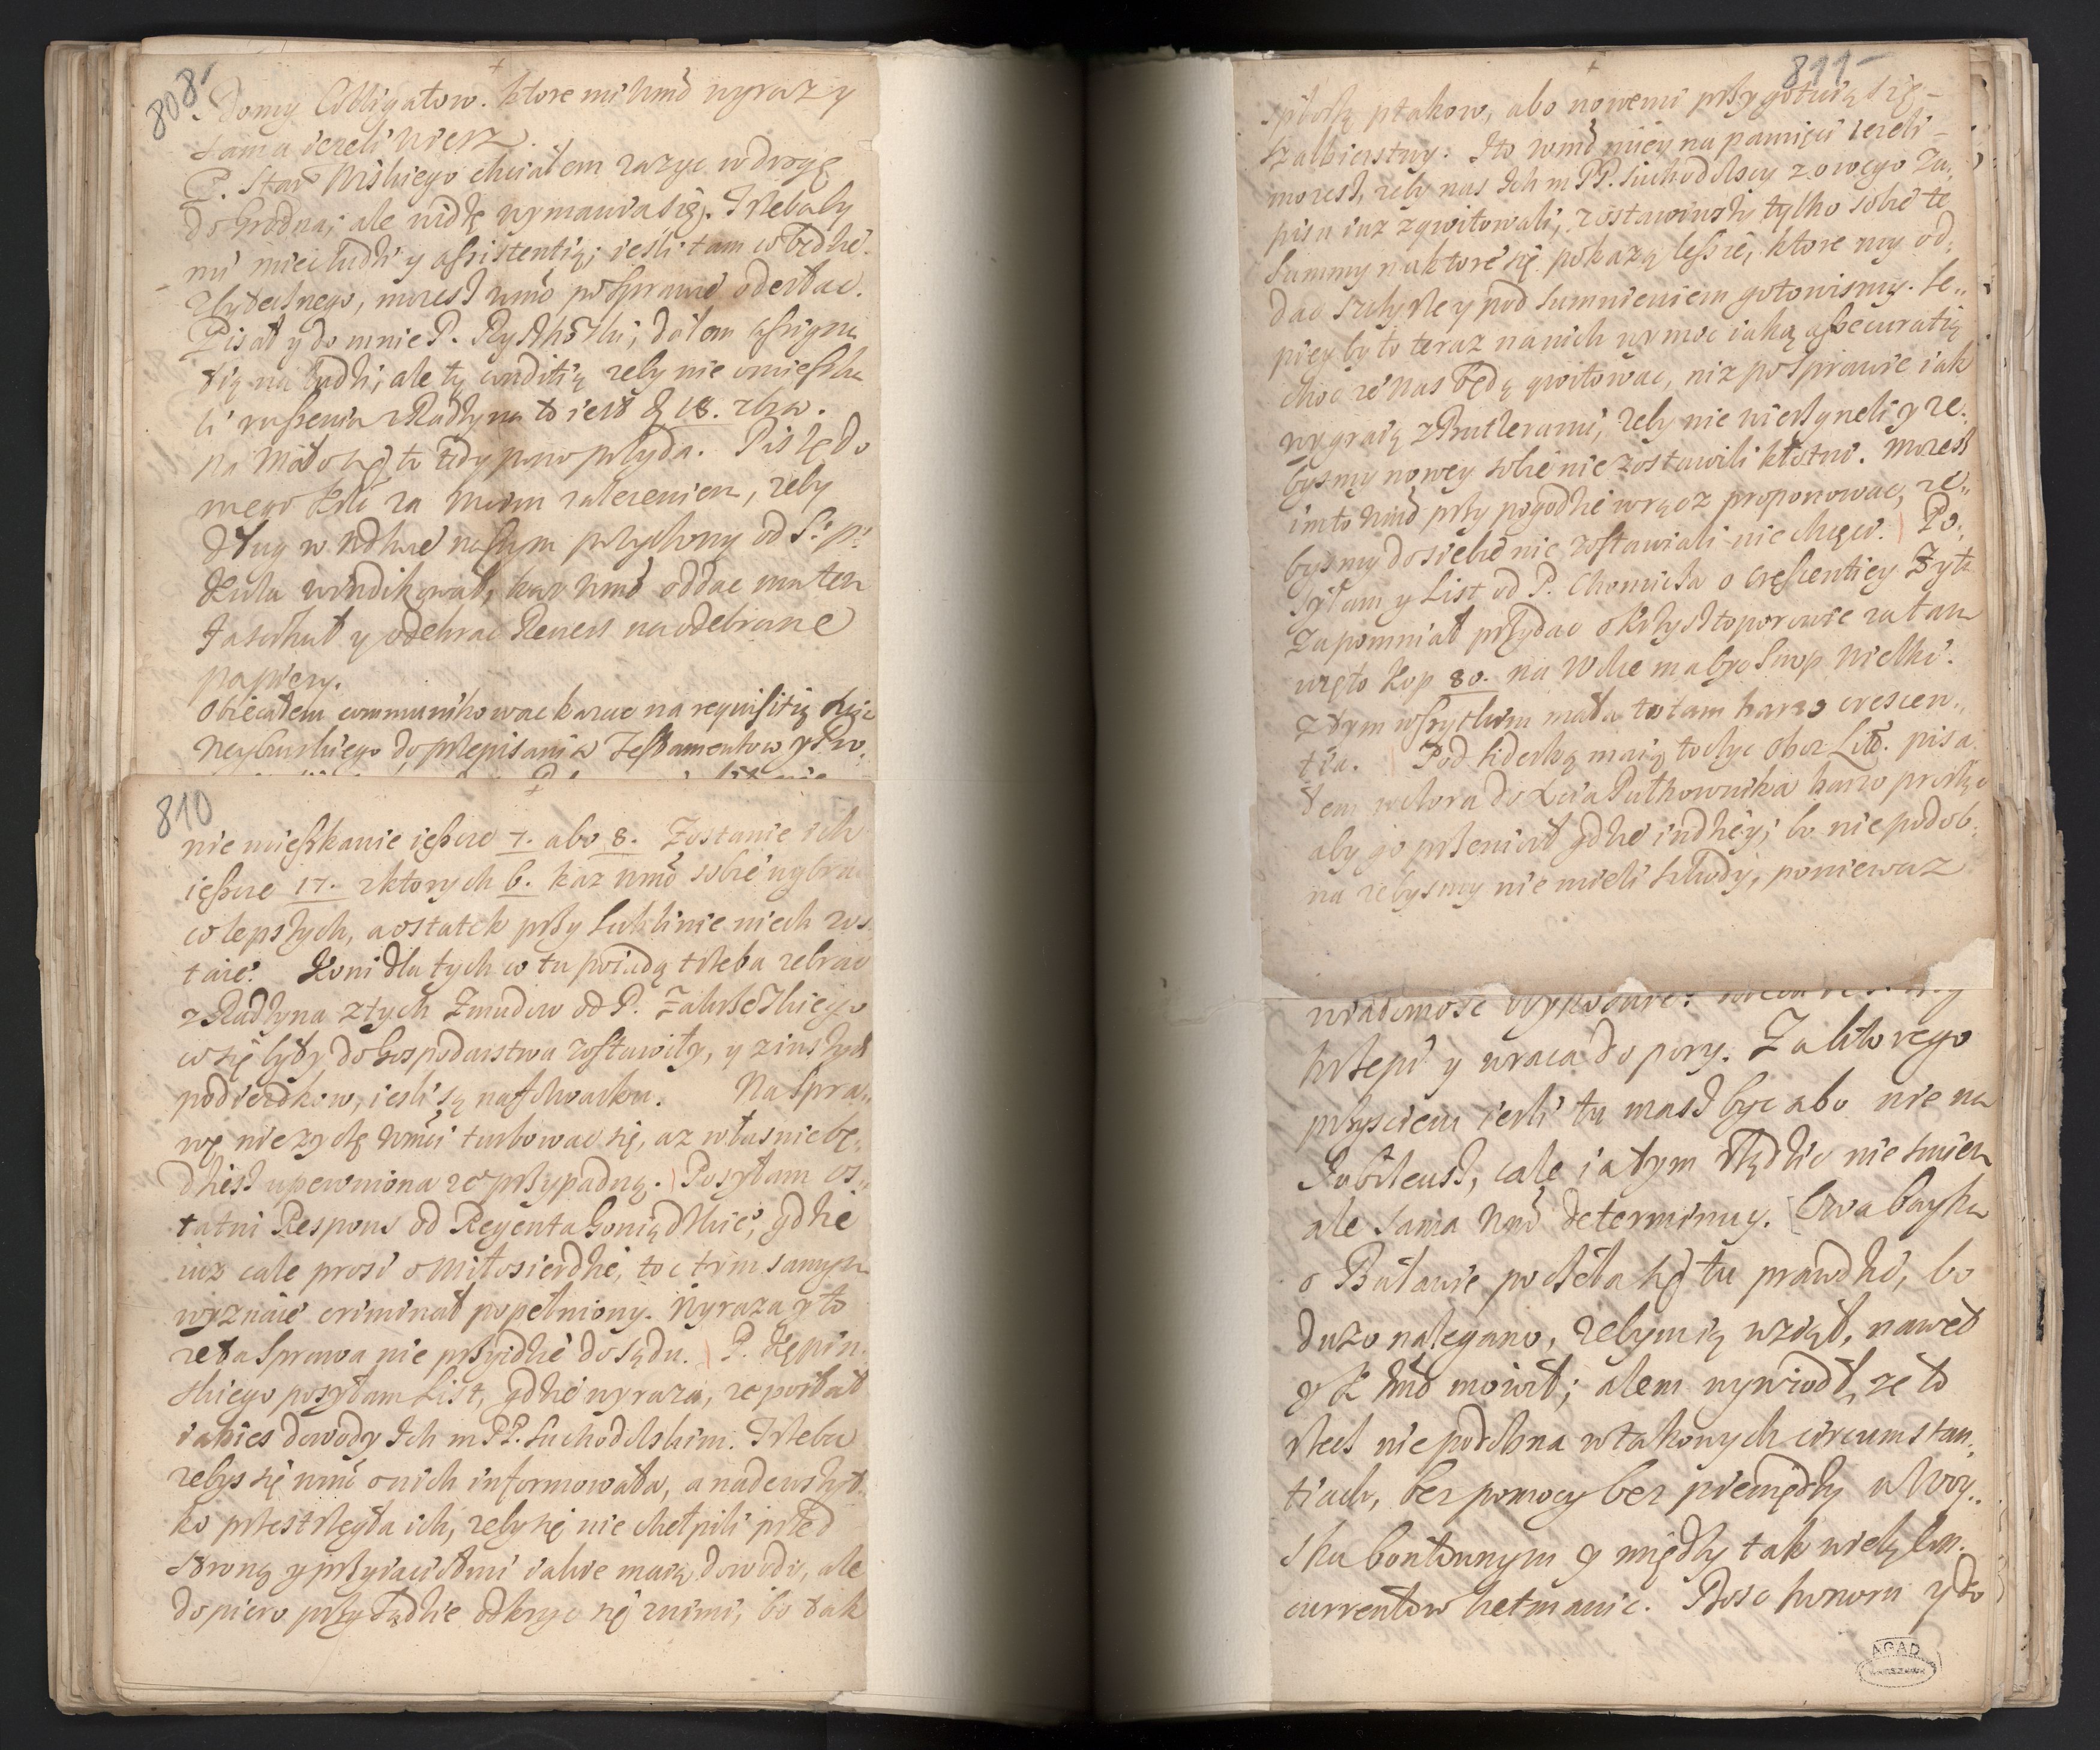 808
domy Colligatow. ktore mi Wmć wyrazy
sama iezeli wiesz.
P. Star Mskiego chciałem zazyc w drogę
do Grodna, ale widzę wymawia się. Trzebaby
mi miec ludzi y assistentią; ieśli tam co będzie
Uzytecznego, mozesz Wmć po sprawie odesłac.
Pisał y do mnie P. dałem assigna
tią na ludzi, ale tą conditią zeby nie omieszka
li ruszenia z Radzyna to iest d. 18. xbra.
na mało się to tedy przyda. Piszę do
mego za Wmci zaleceniem, zeby
dług w naszym pozyczony od S. p.
windikował, kaz Wmć oddac mu ten
y odebrac Revers na odebrane
papiery.
Obiecałem communikowac kazac na requisitią
Neyburskiego do przepisania Testamentow y Pro,
810
nie mieszkanie ieszcze 7. abo 8. Zostanie ich
ieszcze 17. z ktorych 6. kaz Wmć sobie wybrac
co lepszych, a ostatek przy Lublinie niech zos
taie. Koni dla tych co tu poiadą trzeba zebrac
z Radzyna z tych Zmudow od P.
co się były do Gospodarstwa zostawiły, y z inszych
podiezdkow, iesli są na folwarku. Na Spra,,
wę nie zyczę Wmci turbowac się, az własnie bę,
dziesz upewniona ze przypadną. Posyłam os,,
tatni Respons od Regenta Goniądzkie, gdzie
iuz cale prosi o Miłosierdzie, toc tym samym
wyznaie criminał popełniony. Wyraza y to
ze ta Sprawa nie przyidzie do Sądu. P. Kępin
skiego posyłam List, gdzie wyraza, ze posłał
iakies dowody Ich m PP. Suchodolskim. Trzeba
zebys się Wmć o nich informowała, a nadewszyt
ko przestrzegła ich, zeby się nie chełpili przed
stroną y przyiaciołmi iakie maią dowody, ale
dopiero przy Sądzie odkryc się z nimi, bo tak
811
spłoszą ptakow, abo nowemi przygotuią się
szalbierstwy. Ito Wmć miey na pamięci iezeli
mozesz, zeby nas Ich m PP. Suchodolscy z owego Za,
pisu iuz zqwitowali, zostawiwszy tylko sobie te
Summy na ktore się pokazą lessie, ktore my od,
dac y pod sumnieniem gotowismy. Le,,
piey by to teraz na nich wymoc iaką assecuratią
choc ze nas będą qwitowac, niz po Sprawie iak
wygraią z Butlerami, zeby nie wierzgneli y ze,
bysmy nowey sobie nie zostawili kłotni. Mozesz
im to Wmć przy pogodzie wręcz proponowac, ze,,
bysmy do siebie nie zostawiali nie chęci. Po,
syłam y List od P. Chomicza o Crescentiey Zyta
Zapomniał przydac o Krzysztoporowie za tam
wzęto Kop 80. na Wilce ma byc Snop wielki.
z tym wszytkim mała to tam barzo crescen,,
tia. Pod Siderką maią toczyc Oboz Litt. pisa
łem wczora do Xcia Pułkownika barzo prosząc
aby go przeniosł gdzie indziey; bo nie podob,
na zebysmy nie mieli szkody, poniewaz
wiadomosc
krzepi y wraca do pory. Za ktorego
przysciem iesli tu masz byc abo nie na
Jubileusz, cale ia tym rządzic nie smiem
ale sama Wmć determinuy. Owa bayka
o Buławie poczęła się tu prawdzic, bo
duzo nalegano, zebym ią wziął, nawet
y X Jmć mowił; alem wywiodł, ze to
rzecz nie podobna w takowych circumstan,
tiach, bez pomocy bez pieniędzy w Woy,,
sku bontownym y między tak wielą con,
currentow hetmanic. Prosc honoru y do
AGAD
WARSZAWA